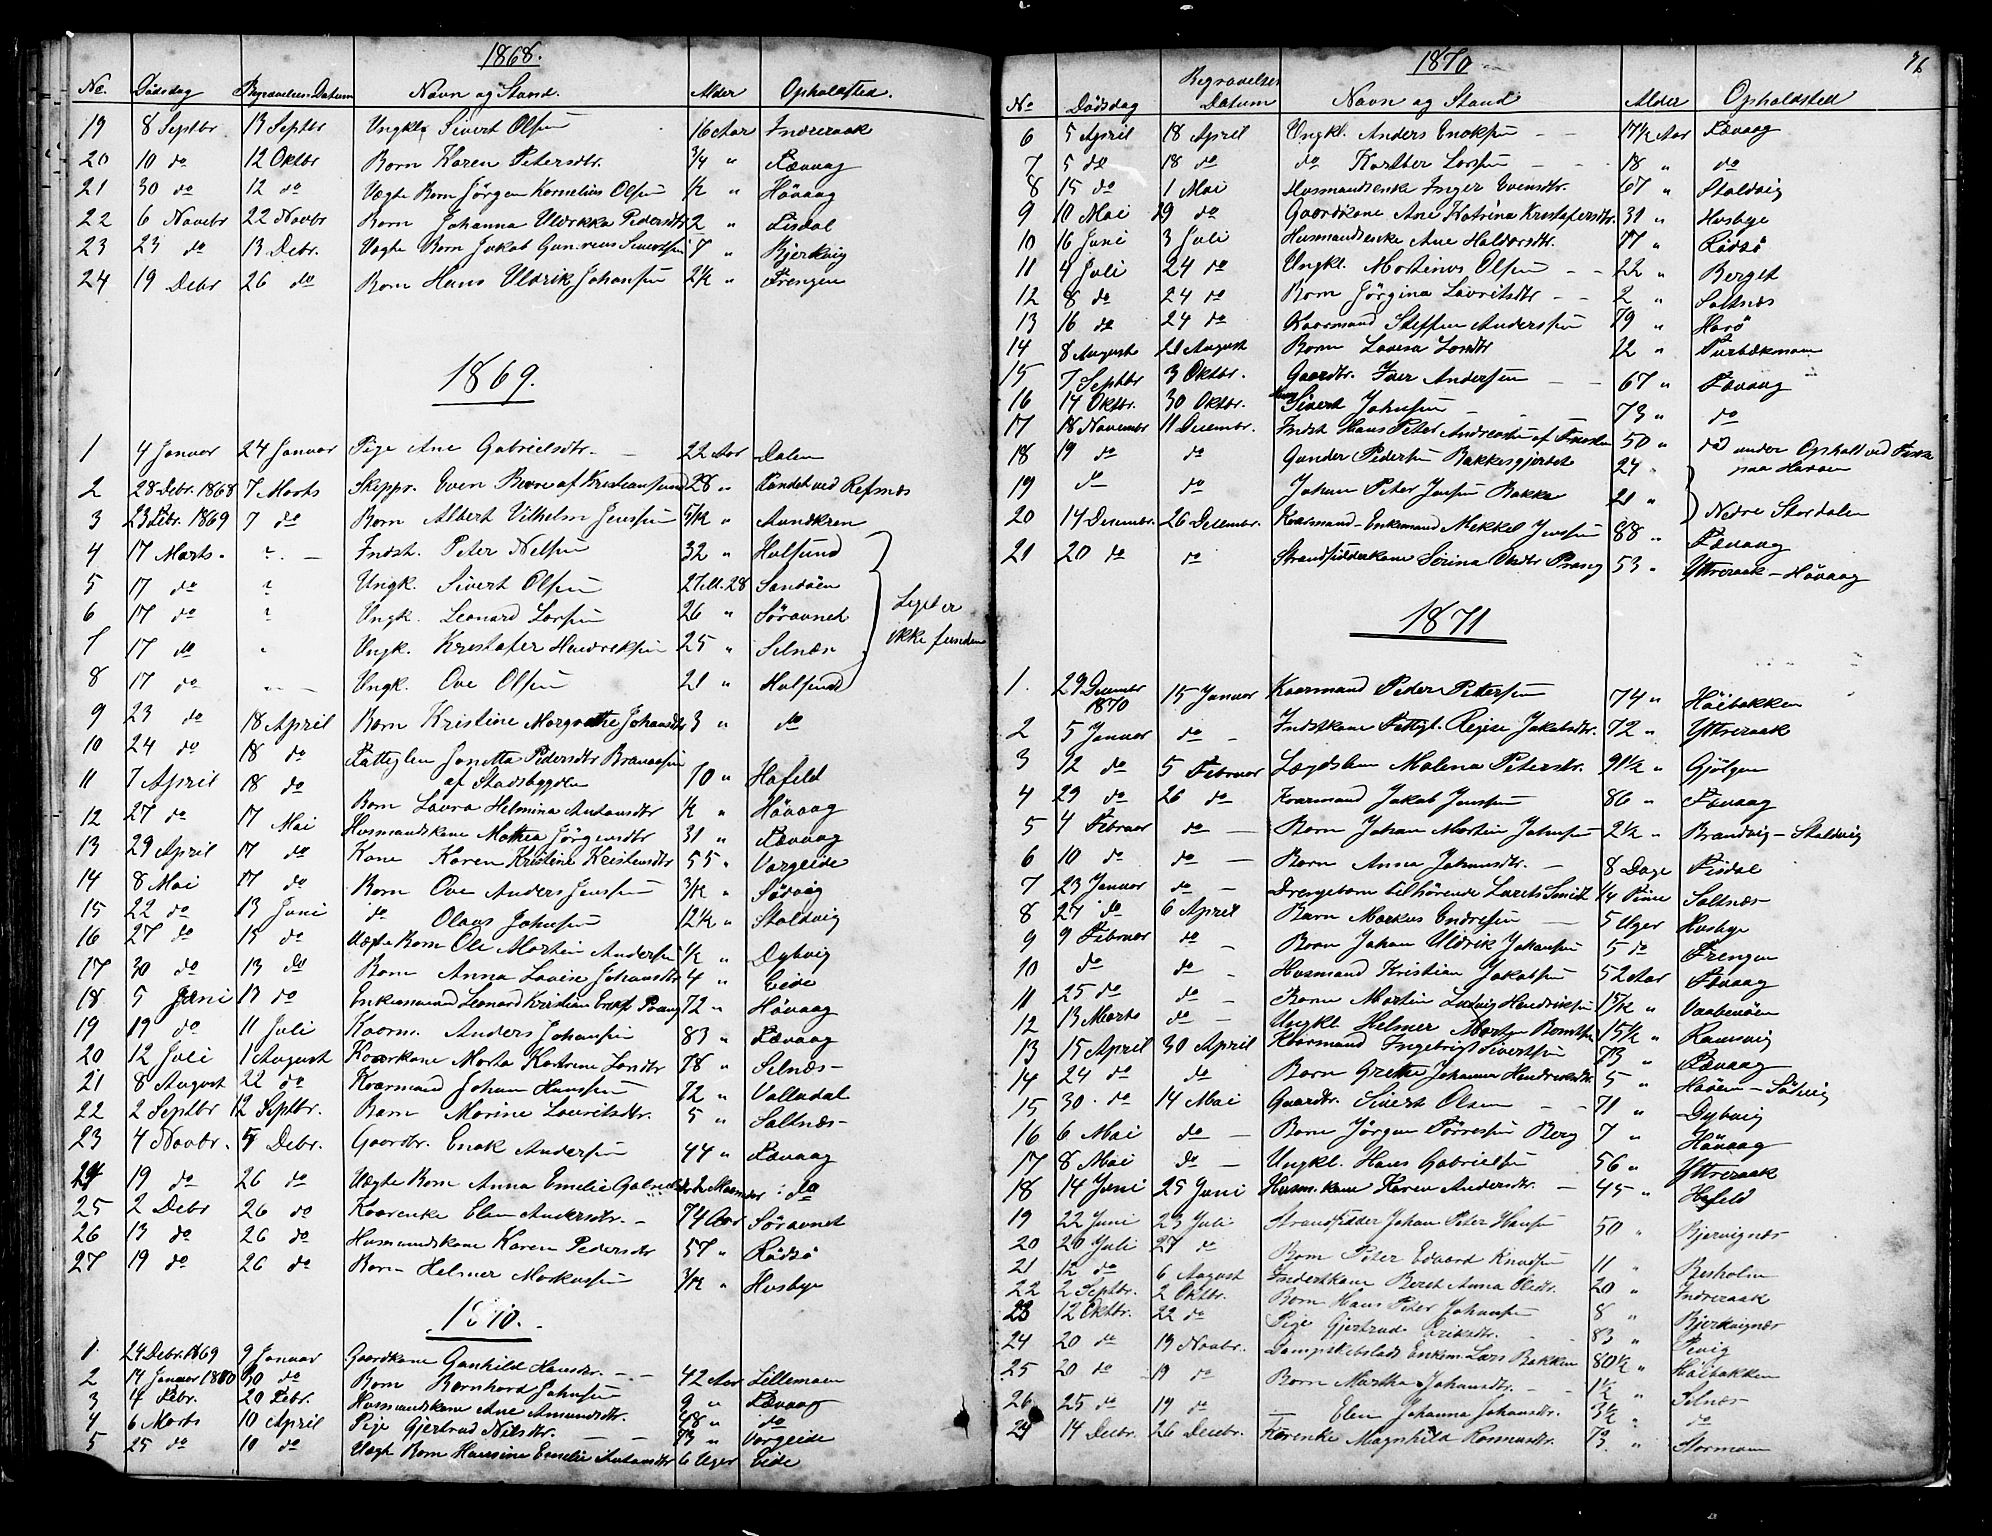 1868.
No. Dödsdag Begravelses Datum Navn og Stand. Alder Opholdsted.
19 8 Septbr 13 Septbr Ungkl. Sivert Olsen 16 Aar Indreraak
20 10 do 12 Oktbr Barn Karen Petersdtr. 3/4 " Tævaag
21 30 do 12 do Uægte Barn Jörgen Kornelius Olsen 1/2 " Hövaag
22 6 Novebr 22 Novbr Barn Johanna Uldrikka Pedersdtr 2 " Lisdal
23 23 do 13 Debr. Uægte Barn Jakob Sivertsen 7 " Bjerkvig
24 19 Debr 26 do Barn Hans Uldrik Johansen 2 1/2 " Trengen
1869.
1 4 Januar 24 Januar Pige Ane Gabrielsdtr. 22 Aar Dalen
2 28 Debr. 1868 7 Marts Skippr. Even af Kristiansund 28 " Landet ved Refsnæs
3 23 Febr. 1869 7 do Barn Albert Vilhelm Jensen 5/12 " Aunkren
4 17 Marts - ? - Indst. Peter Nelsen 32 " Holsund
5 17 do ? Ungk. Sivert Olsen 27 ell. 28 Sandöen
6 17 do ? Ungk. Leonard Larsen 26 " Söravnet
Liget er
ikke funden
7 17 do " Ungk. Kristafer Hendreksen 25 " Selnæs
8 17 do " - Ungk. Ove Olsen 21 " Holsund
9 23 do 18 April Barn Kristine Margrethe Johansdtr 3 " do
10 24 do 18 do Fattiglem Janetta Pedersdtr
af Stadsbygden 70 " Hafeld
11 7 April 18 do Barn Laura Helmina Antonsdtr 1/2 " Hövaag
12 27 do 17 Mai Husmandskone Mathea Jörgensdtr 31 " Tævaag
13 29 April 17 do Kone Karen Kristine Kristensdtr 55 " Vargeide
14 8 Mai 17 do Barn Ove Anders Jensen 3/12 " Södvig
15 22 do 13 Juni do Olaus Johnsen 12 1/2 " Staldvig
16 27 do 13 do Uægte Barn Ole Martin Andersen 1/2 " Dybvig
17 30 do 13 do Barn Anna Lovise Johansdtr 4 " Eide
18 5 Juni 13 do Enkemand Leonard Kristian Prang 72 " Hövaag
19 19 do 11 Juli Kaarm. Anders Johansen 83 " Tævaag
20 12 Juli 1 August Kaarkone Marta Katrine 78 " Selnæs -
21 8 August 22 do Kaarmand Johan Hansen 72 " Valladal
22 2 Septbr 12 Septbr. Barn Marine Lauritsdtr. 5 " Saltnæs -
23 4 Novbr. 5 Debr. Gaardbr. Enok Andersen 44 " Tævaag
24 19 do 26 do Uægte Barn Anna Emelie 2 Maaneder do
25 2 Debr 26 do Kaarenke Elen Andersdtr. - 74 Aar Söravnet
26 13 do 26 do Husmandskone Karen Pedersdtr 57 " Rödsö
27 19 do 26 do Barn Helmer Markussen 3/12 " Husbye
1870.
1 24 Debr. 1869 9 Januar Gaardkone Gunhild Hansdtr. - - 42 Aar Lillemoen
2 14 Januar 1870 30 do Barn Bernhard Johnsen 9 " Tævaag
3 4 Febr. 20 Febr. Husmandskone Ane Amundsdtr. 48 " do
4 6 Marts 10 April Pige Gjertrud Nilsdtr. 73 " Vargeide
5 25 do 10 do Uægte Barn Hansine Emelie Antonsdtr 6 Uger Eide
1870 76
No Dödsdag Begravelses Datum Navn og Stand Alder Opholdsted
6 5 April 18 April Ungkl. Anders Enoksen - - 17 1/2 Aar Tævaag
7 5 do 18 do do Larsen - 18 " do
8 15 do 1 Mai Husmandsenke Inger Evensdtr. 67 " Staldvig
9 10 Mai 29 do Gaardkone Ane Katrina Kristafersdtr. 31 " Husbye
10 16 Juni 3 Juli Husmandsenke Ane Haldorsdtr. 77 " Rödsö
11 4 Juli 24 do Ungkl. Martinus Olsen - - 22 " Berget
12 8 do 24 do Barn Jörgina Lavritsdtr - - 2 " Saltnæs
13 16 do 24 do Kaarmand Steffen Anderssen 79 " Harö
14 8 August 21 August Barn Lovisa 12 "
15 7 Septbr 3 Oktbr. Gaardbr. Iver Andersen - - 67 " Tævaag
16 14 Oktbr. 30 Oktbr. Sivert Johnsen - 73 " do
17 18 Novembr 11 Decembr. Indst Hans Peter Andreasen af 50 " död under Ophold ved Fiske
paa Havöen
18 19 do do Gunder Pedersen Bakkegjerdet 24 "
19 do do Johan Peter Jensen Bakke 21 " Nedre Stordalen
20 14 Decembr. 26 Decembr. Kaarmand - Enkemand Mekkel Jenssen 88 " Tævaag
21 20 do do Strandsidderkone Serina Prang 53 " Yttreraak - Hövaag
1871
1. 29 Decembr
1870 15 Januar Kaarmand Peder Pettersen 74 " Höibakken
2 5 Januar do - Indstkone Fattigl. Regise Jakobsdtr. 72 " Yttreraak
3 12 do 5 Februar Lægdslem Malena Petersdtr. 91 1/2 " Gjölgen
4 29 do 26 do Kaarmand Jakob Jensen 86 " Tævaag
5 4 Februar do - Barn Johan Martin Johnsen 2 1/2 " Brandvig - Staldvig
6 10 do do - Barn Anna Johansdtr. - 8 Dage Lisdal
7 23 Januar do - Drengebarn tilhörende Smidt 1/4 Time Saltnæs -
8 27 do 6 April Barn Markus Endresen 5 Uger Husbye
9 9 Februar do - Barn Johan Uldrik Johansen 5 do Trengen
10 do do - Husmand Kristian Jakobsen 52 Aar Tævaag
11 25 do do - Barn Martin Ludvig Hendriksen 1 5/12 " Vaabenöen
12 13 Marts do - Ungkl. Helmer 15 1/2 " Ramsvig
13 15 April 30 April Kaarmand Ingebrigt Sivertsen 73 " Tævaag
14 24 do do Barn Grethe Johanna Hendriksdtr. 5 " Havöen - Södvig
15 30 do 14 Mai Gaardbr. Sivert Olsen - - 71 " Dybvig
16 6 Mai do - Barn Jörgen Törresen Berg 7 " Hövaag
17 8 Mai do - Ungkl. Hans Gabrielsen 56 " Yttreraak
18 14 Juni 25 Juni Husm. kone Karen Andersdtr. - 45 " Hafeld
19 22 Juni 23 Juli Strandsidder Johan Peter Hansen 50 " Bjervignæs
20 20 Juli 27 do Barn Peter Edvard Knudsen 11 " Besholm
21 12 do 6 August Inderstkone Beret Anna Olsdtr. 20 " Indreraak
22 2 Septbr. 2 Oktbr. Barn Hans Peter Johansen 8 " Bjerkvignæs
23 12 Oktbr. 22 do Pige Gjertrud Eriksdtr. - 83 "
24 20 do 19 Novbr. Enkem. Lars Bakken 80 1/2 " Höibakken
25 20 do 19 do Barn Martha Johansdtr. - 1 1/2 " Selnæs
26 25 do 19 do - Elen Johanna Johansdtr. 3 1/2 " do
27 14 Debr. 26 Decbr. Kaarenke Magnhild Rasmusdtr. 73 " Stormoen